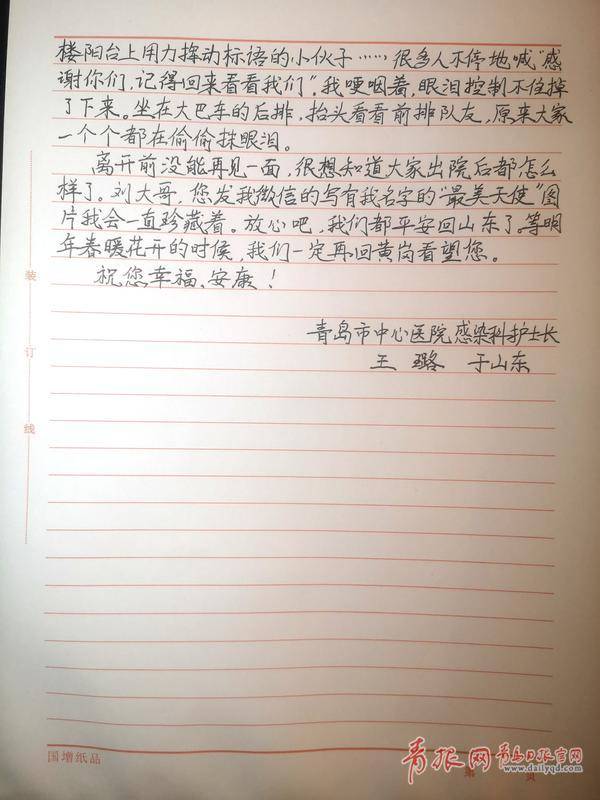 楼阳台上用力挥动标语的小伙子……很多人不停地喊“感
谢你们,记得回来看看我们”。我哽咽着,眼泪控制不住掉
了下来。坐在大巴车的后排,抬头看看前排队友,原来大家
一个个都在偷偷抹眼泪。
离开前没能再见一面,很想知道大家出院后都怎么
样了。刘大哥,您发我微信的写有我名字的“最美天使”图
片我会一直珍藏着。放心吧,我们都平安回山东了。等明
年春暖花开的时候,我们一定再回黄岗看望您。
祝您幸福、安康!
青岛市中心医院感染科护士长
王璐 于山东
装
订
线
国增纸品
第 页
青报网 青岛日报官网
www.dailyqd.com